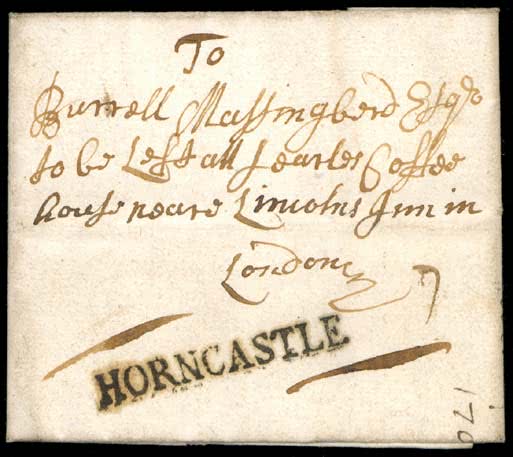 To
Burrell Massingberd Esqr
to be Left att Searles Coffee
house neare Lincolns Inn in
London
7
HORNCASTLE
170